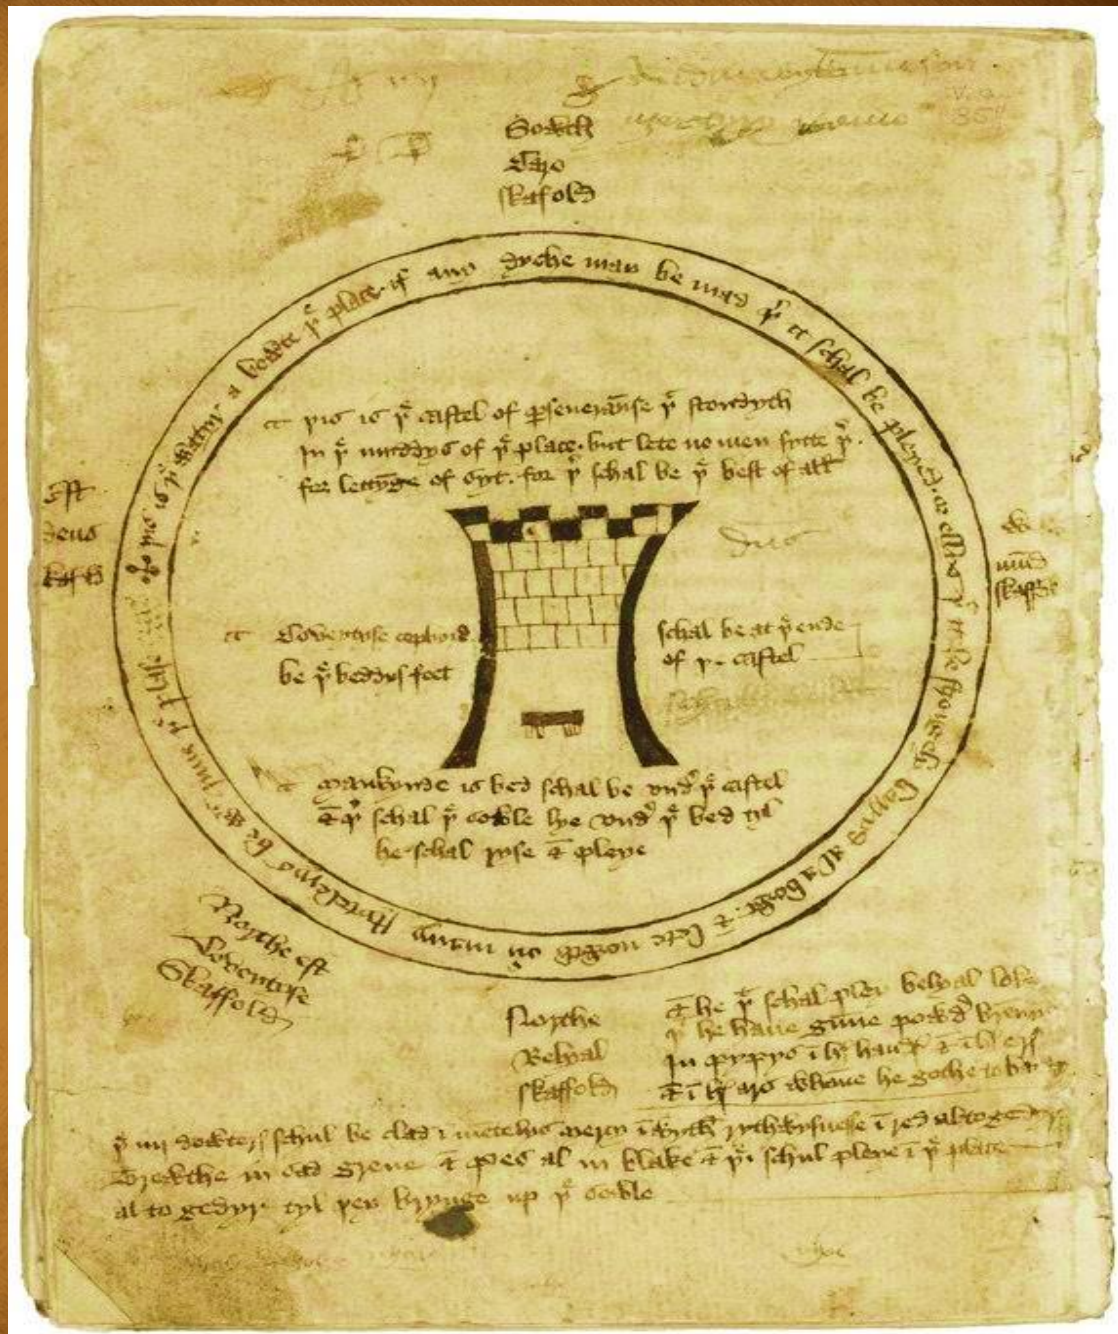 Sowth
Caro
skafold
þis is þe watyr a bowte þe place. if any dyche may be mad þer it schal be pleyed. or ellys þat it be strongely barryd al a bowt. & lete nowth ouyr many stytelerys be wyth inne þe plase
þis is þe castel of perseueraunse þat stondyth
In þe myddys of þe place. but lete no men sytte þer.
for lettynge of syt. for þer schal be þe best of all
Est
deus
skafold
W
mund
skaffold
dns
Coveytyse copbord schal be at þe ende
be þe beddys feet of þe castel
Mankynde is bed schal be undyr þe castel
& þer schal þe sowle lye undyr þe bed tyl
he schal ryse & pleye
Northe est
Coveytyse
Skaffold
Northe
Belyal
skaffold
& he þat schal pley belyal loke
þat he haue gunne powdyr brennynge
In pypys in hys handys & in hys erys
& in hys ars whanne he gothe to batayl
þe iiij dowterys schul be clad in mentelys mercy in wyth rythwysnesse in red altogedyr
Trewthe in sad grene & pes al in blake & þei schul pleye in þe place
al to gedyr tyl þey brynge up þe sowle